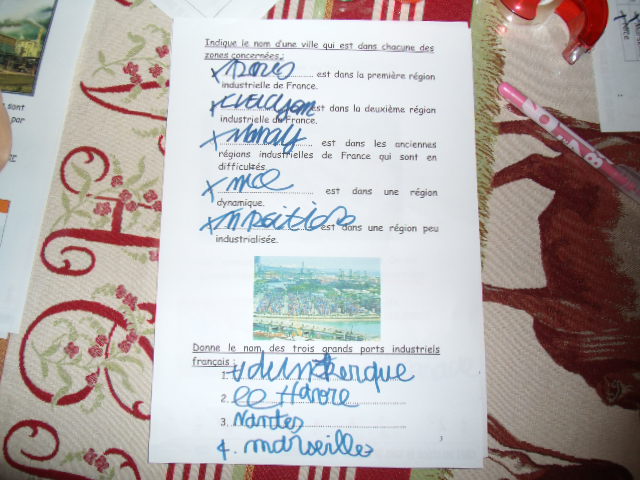 Indique le nom d'une ville qui est dans chacune des
zones concernées :
x Paris est dans la première région
industrielle de France.
x est dans la deuxième région
industrielle de France.
x Nancy est dans les anciennes
régions industrielles de France qui sont en
difficultés.
x nice est dans une région
dynamique.
x est dans une région peu
industrialisée.
Donne le nom, des trois grands ports industriels
français :
1. dunkerque
2. le Havre
3. Nantes
4. marseille
3
sont
par